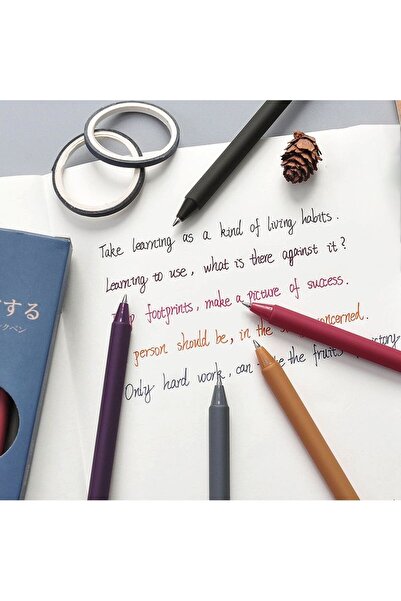 Take learning as a kind of living habits.
Learning to use, what is there against it?
footprints, make a picture of success.
person should be, in the concerned.
Only hard work, can the fruits
する
クペン